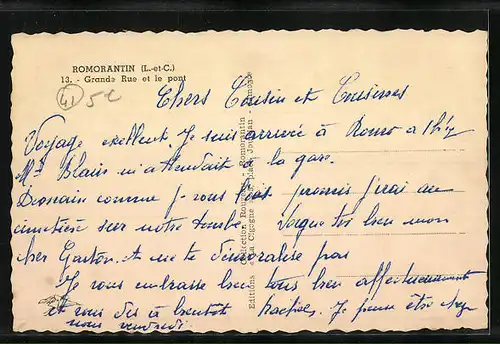 ROMORANTIN (L.-et-C.)
13. - Grande Rue et le pont
41 5€
Chers Cousin et Cousines
Voyage exellent Je suis arrivée à Romo a 1h
Mr Blain m'attendait a la gare.
Demain comme je vous promis j'irai au
cimetière sur notre tombe Soigne toi bien mon
cher Gaston. et ne te démoralise pas
Je vous embrasse bien tous bien affectueusement
et vous dis à bientot Je pense être
vous vendredi
Collection Romorantin
Editions La Cigogne Place